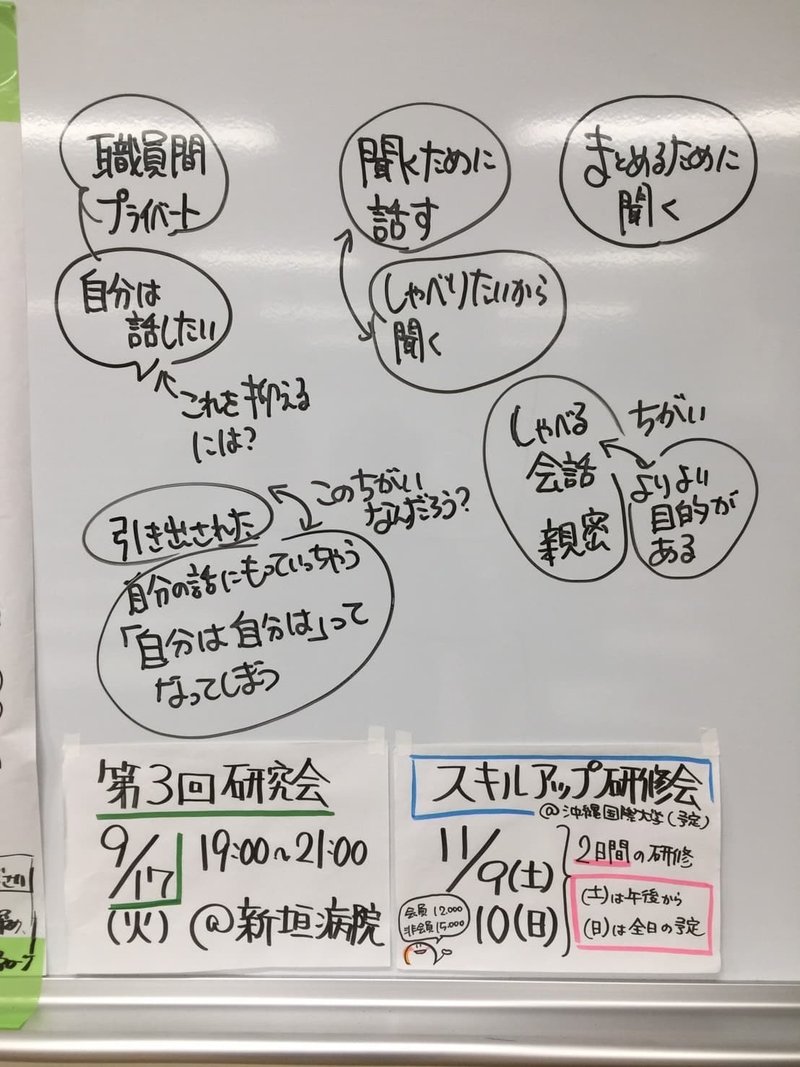 職員間
プライベート
自分は
話したい
これを抑える
には?
聞くために
話す
しゃべりたいから
聞く
まとめるために
聞く
しゃべる
会話
親密
ちがい
よりよい
目的が
ある
引き出された
このちがい
なんだろう?
自分の話にもっていっちゃう
「自分は自分は」って
なってしまう
第3回研究会
9/17
(火)
19:00~21:00
@新垣病院
スキルアップ研修会
@沖縄国際大学(予定)
11/9(土)
10(日)
2日間の研修
(土)は午後から
(日)は全日の予定
会員 12.000
非会員 15.000